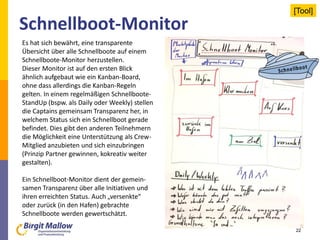 [Tool]
Schnellboot-Monitor
Es hat sich bewährt, eine transparente
Übersicht über alle Schnellboote auf einem
Schnellboote-Monitor herzustellen.
Dieser Monitor ist auf den ersten Blick
ähnlich aufgebaut wie ein Kanban-Board,
ohne dass allerdings die Kanban-Regeln
gelten. In einem regelmäßigen Schnellboote-
StandUp (bspw. als Daily oder Weekly) stellen
die Captains gemeinsam Transparenz her, in
welchem Status sich ein Schnellboot gerade
befindet. Dies gibt den anderen Teilnehmern
die Möglichkeit eine Unterstützung als Crew-
Mitglied anzubieten und sich einzubringen
(Prinzip Partner gewinnen, kokreativ weiter
gestalten).
Ein Schnellboot-Monitor dient der gemein-
samen Transparenz über alle Initiativen und
ihren erreichten Status. Auch „versenkte"
oder zurück (in den Hafen) gebrachte
Schnellboote werden gewertschätzt.
Schnellboot Monitor
Schnellboot
Im Hafen
Klarmachen
Auf Kurs
zurück im
Hafen
am Ziel
versenkt
Daily/Weekly:
Was ist mit dem letzten Treffen passiert?
Was
Was
Wie sind wir mit
umgegangen?
Was
noch
Birgit Mallow
22